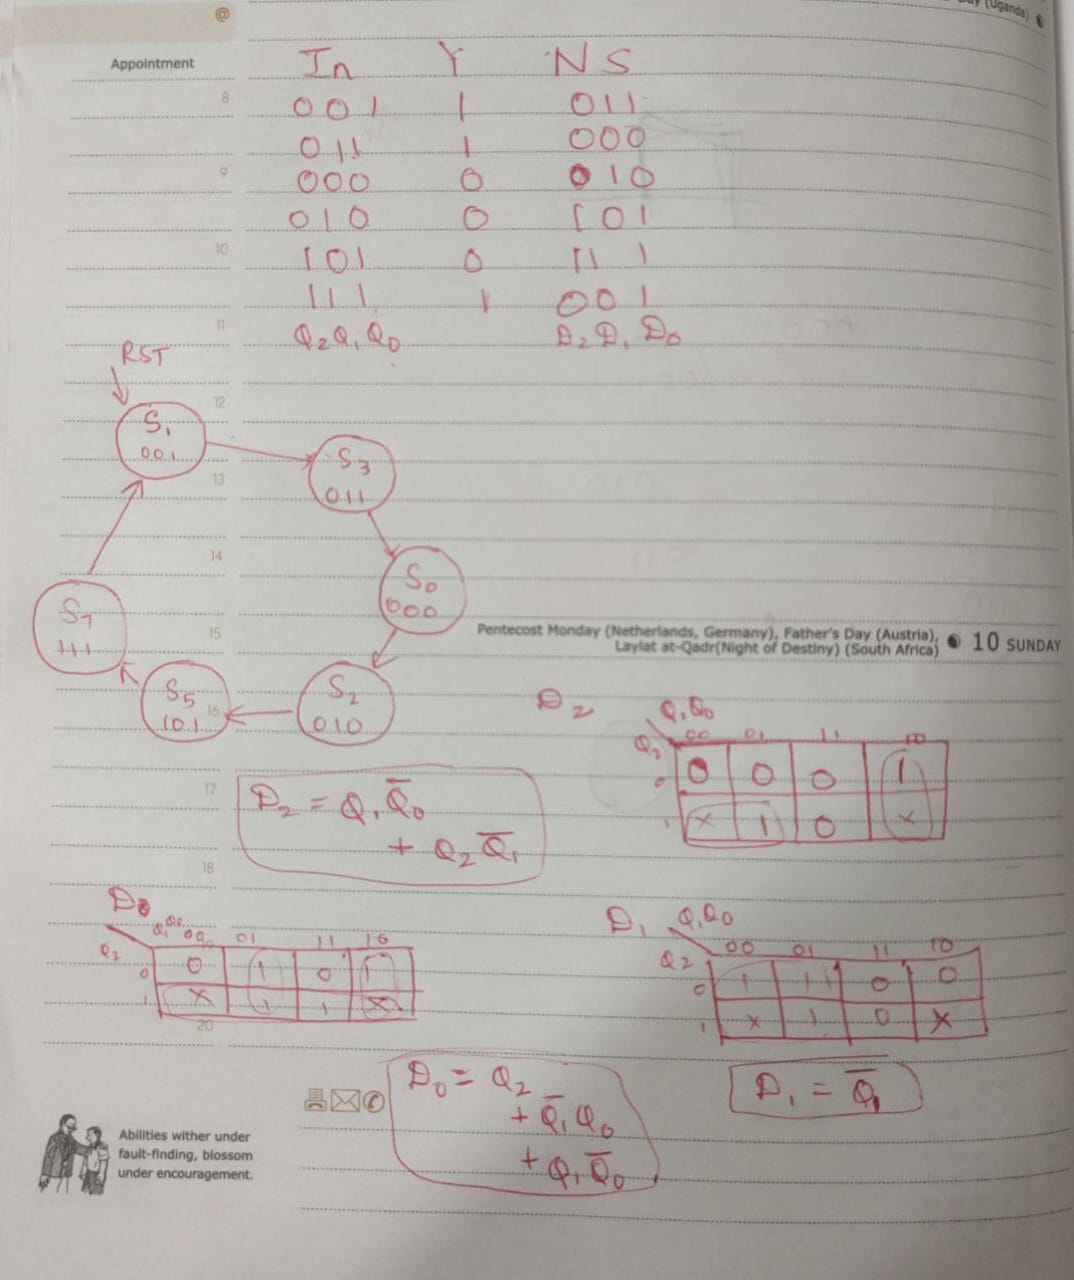 Day (Uganda)
@
Appointment
In Y NS
8
001 1 011
011 1 000
9
000 0 010
010 0 101
10
101 0 111
111 1 001
11
Q₂Q₁Q₀ D₂D₁D₀
RST
12
S₁
001
S₃
011
13
14
S₀
000
S₇
111
15
Pentecost Monday (Netherlands, Germany), Father's Day (Austria),
Laylat at-Qadr(Night of Destiny) (South Africa)
10 SUNDAY
S₅
101
16
S₂
010
D₂ Q₁Q₀
Q₂ 00 01 11 10
0 0 0 0 1
1 X 1 0 X
17
D₂ = Q₁Q̅₀
+ Q₂Q̅₁
18
D₀
Q₁Q₀
Q₂ 00 01 11 10
0 0 1 0 1
1 X 1 1 X
20
D₁ Q₁Q₀
Q₂ 00 01 11 10
0 1 1 0 0
1 X 1 0 X
D₀ = Q₂
+ Q̅₁Q₀
+ Q₁Q̅₀
D₁ = Q̅₁
Abilities wither under
fault-finding, blossom
under encouragement.